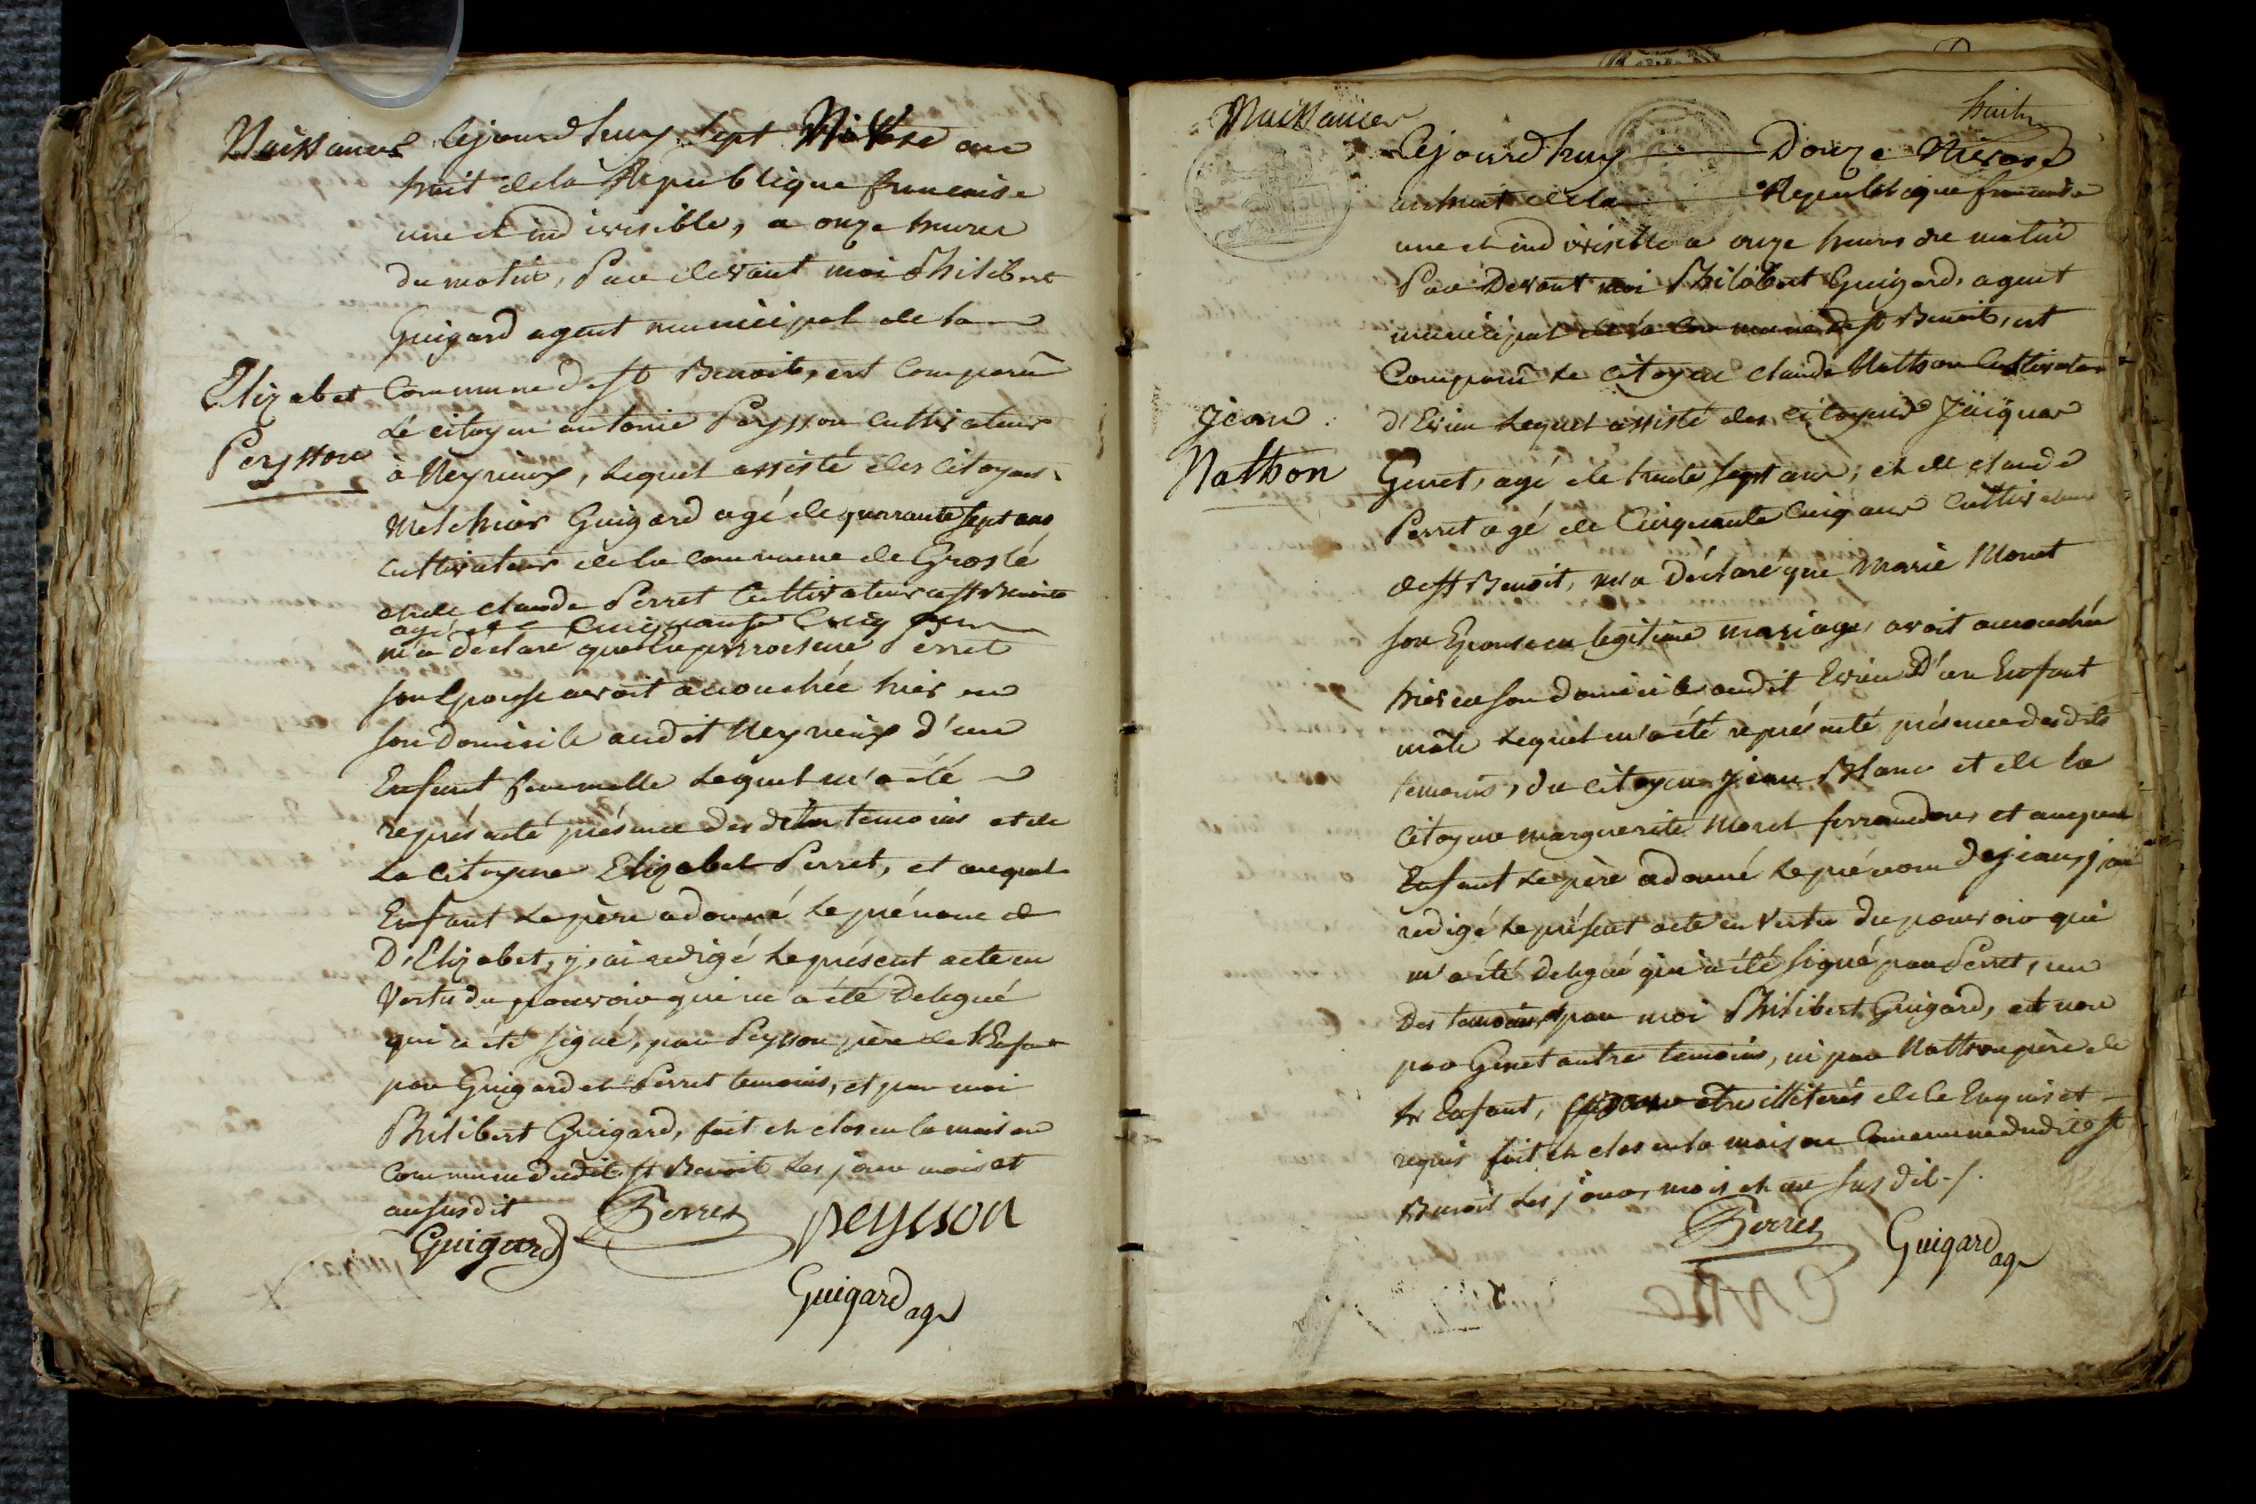 Naissances Cejourd'huy sept Nivose an
huit de la Republique francaise
une et indivisible, a onze heures
du matin, Par devant moi Philibert
Guigard agent municipal de la
Elizabet
Peysson
Commune de St Benoit, est comparu
Le citoyen antoine Peysson cultivateur
à Neyrieux, Lequel assisté des citoyens
Melchior Guigard agé de quarante sept ans
cultivateur de la commune de Groslé
et de claude Perret cultivateur a St Benoit
agé de Cinquante Cinq ans
m'a déclaré que Perret
son Epouse avoit accouchée hier en
son domicile audit Neyrieux d'un
Enfant femelle Lequel m'a été
représenté présence des dits temoins et de
La citoyene Elizabet Perret, et auquel
Enfant Le père a donné Le prénom
D'Elizabet, j'ai redigé Le présent acte en
Vertu du pouvoir qui m'a été Delegué
qui a été signé, par Peysson père de l'Enfant
par Guigard et Perret temoins, et par moi
Philibert Guigard, fait et clos en la maison
Commune dudit St Benoit Les jour mois et
an susdit
Perret
peysson
Guigard
Guigard agt
huit
Naissances
Cejourd'huy Douze Nivose
an huit de la Republique francaise
une et indivisible a onze heures du matin
Par Devant moi Philibert Guigard, agent
municipal de la Commune de St Benoit, est
Comparu Le citoyen claude Nathon Cultivateur
Jean
Nathon
d'Evieu Lequel assisté des citoyens Jacques
Genet, agé de trente sept ans, et de claude
Perret agé de Cinquante Cinq ans Cultivateurs
de St Benoit, m'a déclaré que Marie Monet
son Epouse en legitime mariage, avoit accouchée
hier en son domicile audit Evieu D'un Enfant
mâle Lequel m'a été représenté présence des dits
temoins, du citoyen Jean Blanc et de la
Citoyene marguerite Morel et auquel
Enfant Le père a donné Le prénom de jean, j'ai
redigé Le présent acte en Vertu du pouvoir qui
m'a été Delegué qui a été signé par Perret, un
Des temoins par moi Philibert Guigard, et non
par Genet autre temoins, ni par Nathon père de
L'Enfant, être illiterés de ce Enquis et
requis fait et clos en la maison Commune dudit St
Benoit Les jour, mois et an susdit ./.
Perret
Guigard
agt